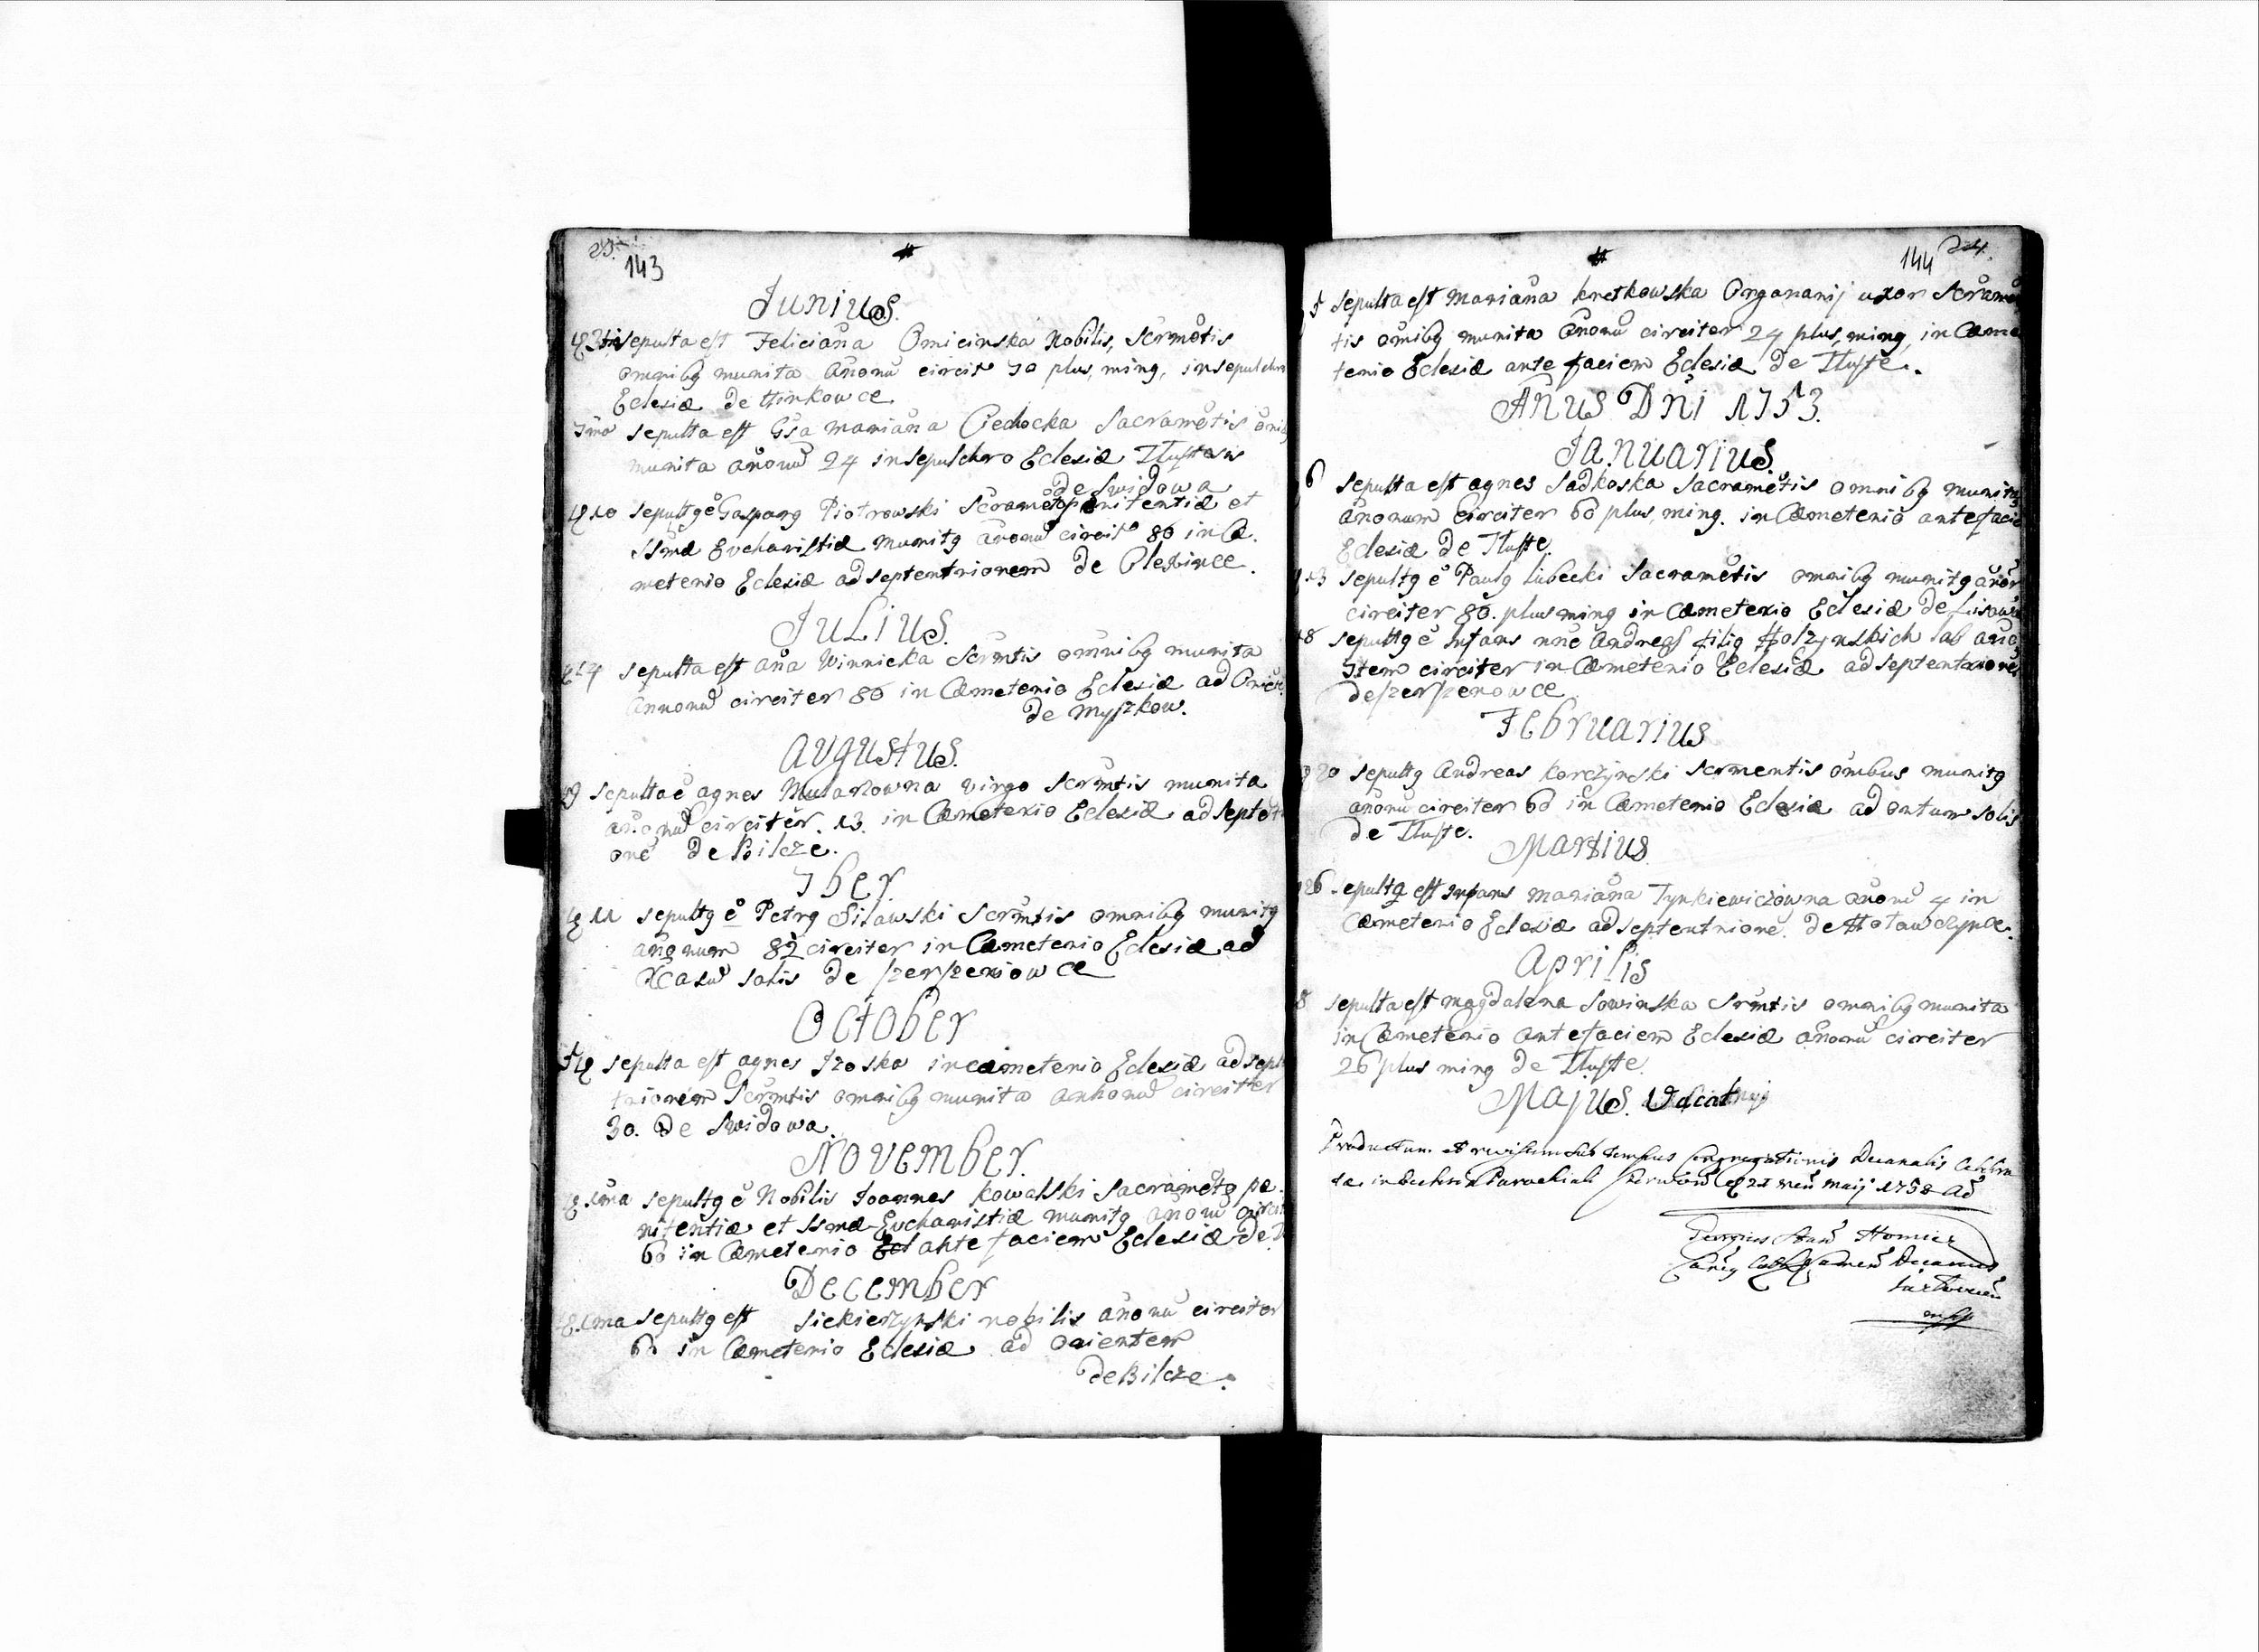 143
Junius.
sepulta est Feliciana Omicinska Nobilis, Scrmetis
omnibq munita anonu circit 70 plus, minq, in sepulchro
Eclesiæ de Hinkowce
7mo sepulta est Gsa Mariana Ciechocka Sacrametis
munita anonu 24 in sepulchro Eclesiæ
de Swidowa
10 sepultq e Gasparq Piotrowski Scrameto pænitentiæ et
ssmæ Eucharistiæ munitq anonu circit 80 in Cæ.
meterio Eclesiæ ad septentrionem de
JULIUS.
sepulta est ana Winnicka Scrmtis omnibq munita
annonu circiter 80 in Cæmeterio Eclesiæ ad
de Myszkow.
Augustus.
9 sepulta e agnes Mularzowna virgo scrmtis munita
anonu circiter. 13. in Cæmeterio Eclesiæ ad septet
one de Bilcze.
7ber
11 sepultq e Petrq Silawski Scrmtis omnibq munitq
anonum 82 circiter in Cæmeterio Eclesiæ ad
solis de szerszeniowce
October
sepulta est agnes Izoska in cæmeterio Eclesiæ ad sept
trionem Scrmtis omnibq munita annonu circitter
30. de Swidowa.
November.
1ma sepultq e Nobilis Joannes Kowalski Sacrametq pæ.
nitentiæ et ssmæ Eucharistiæ munitq anonu
60 in Cæmeterio Ecl ante faciem Eclesiæ de
December
1ma sepultq est Siekierzynski nobilis anonu circiter
60 in Cæmeterio Eclesiæ ad orientem
de Bilcze.
144
5 sepulta est Mariana Kretkowska Organarij uxor Scrame
tis omibq munita anonu circiter 24 plus, minq, in Cæme
terio Eclesiæ ante faciem Eclesiæ de Tluste.
ANUS DNI 1753.
JANUARIUS.
6 sepulta est agnes Sadkoska Sacrametis omnibq munita
anonum circiter 60 plus, minq. in Cæmeterio ante facie
Eclesiæ de Tluste.
13 sepultq e Paulq Lubecki Sacrametis omnibq munitq anor
circiter 80. plus minq in Cæmeterio Eclesiæ de Lisow
18 sepultq e Infans nne Andreas filiq Hołzynskich sub ano
Item circiter in Cæmeterio Eclesiæ ad septentrione
de szerszenowce
Februarius
20 sepultq Andreas Korczynski scrmentis ombus munitq
anonu circiter 60 in Cæmeterio Eclesiæ ad ortum solis
de Tluste.
Martius
26 sepultq est Infans Mariana Tynkiewiczowna anonu 4 in
Cæmeterio Eclesiæ ad septentrione. de Hołowczynce.
Aprilis
8 sepulta est Magdalena Sowinska Scrmtis omnibq munita
in Cæmeterio ante faciem Eclesiæ anonu circiter
26 plus minq de Tluste.
Majus.
Productum et revisum sub tempus Congregationis Decanalis
in Ecclesia Parochiali 21 Maij 1753
Georgius
Decanus